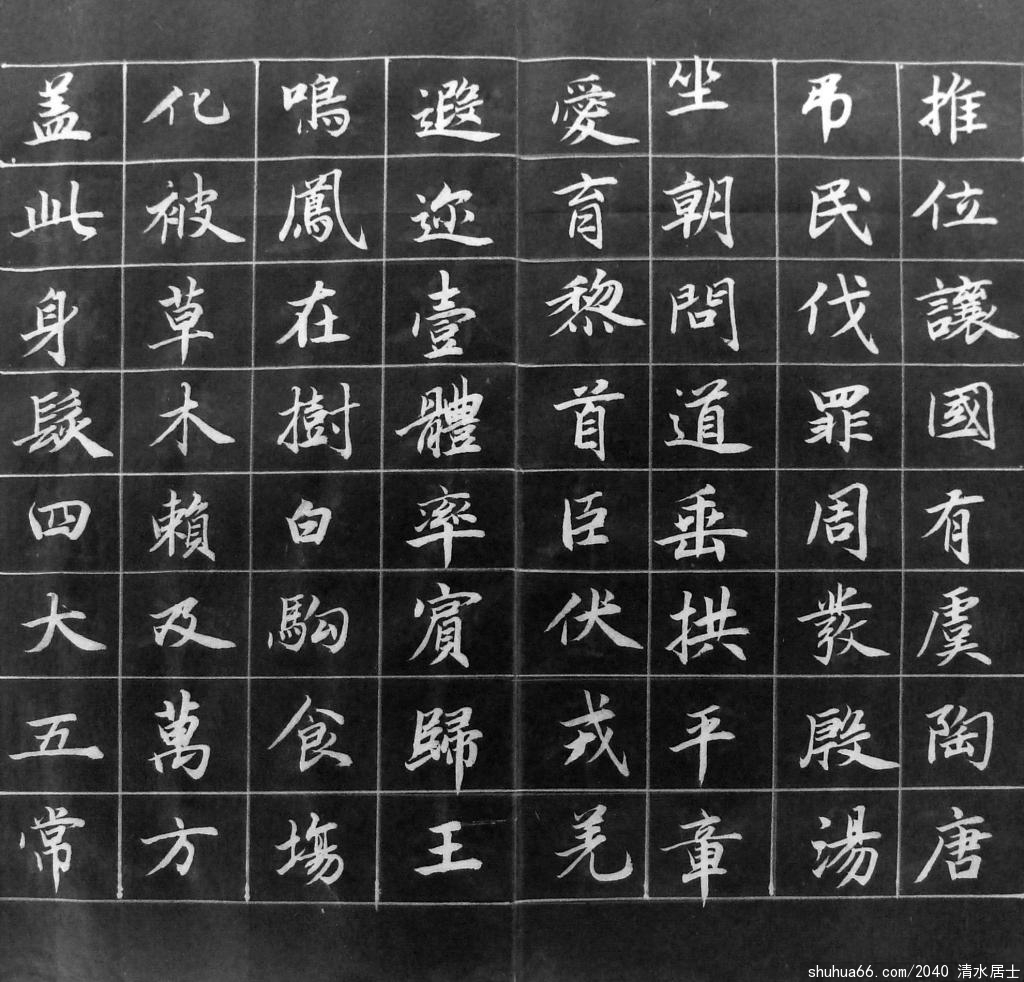 推位讓國有虞陶唐
吊民伐罪周發殷湯
坐朝問道垂拱平章
愛育黎首臣伏戎羌
遐迩壹體率賓歸王
鳴鳳在樹白駒食場
化被草木賴及萬方
盖此身髮四大五常
shuhua66.com/2040 清水居士